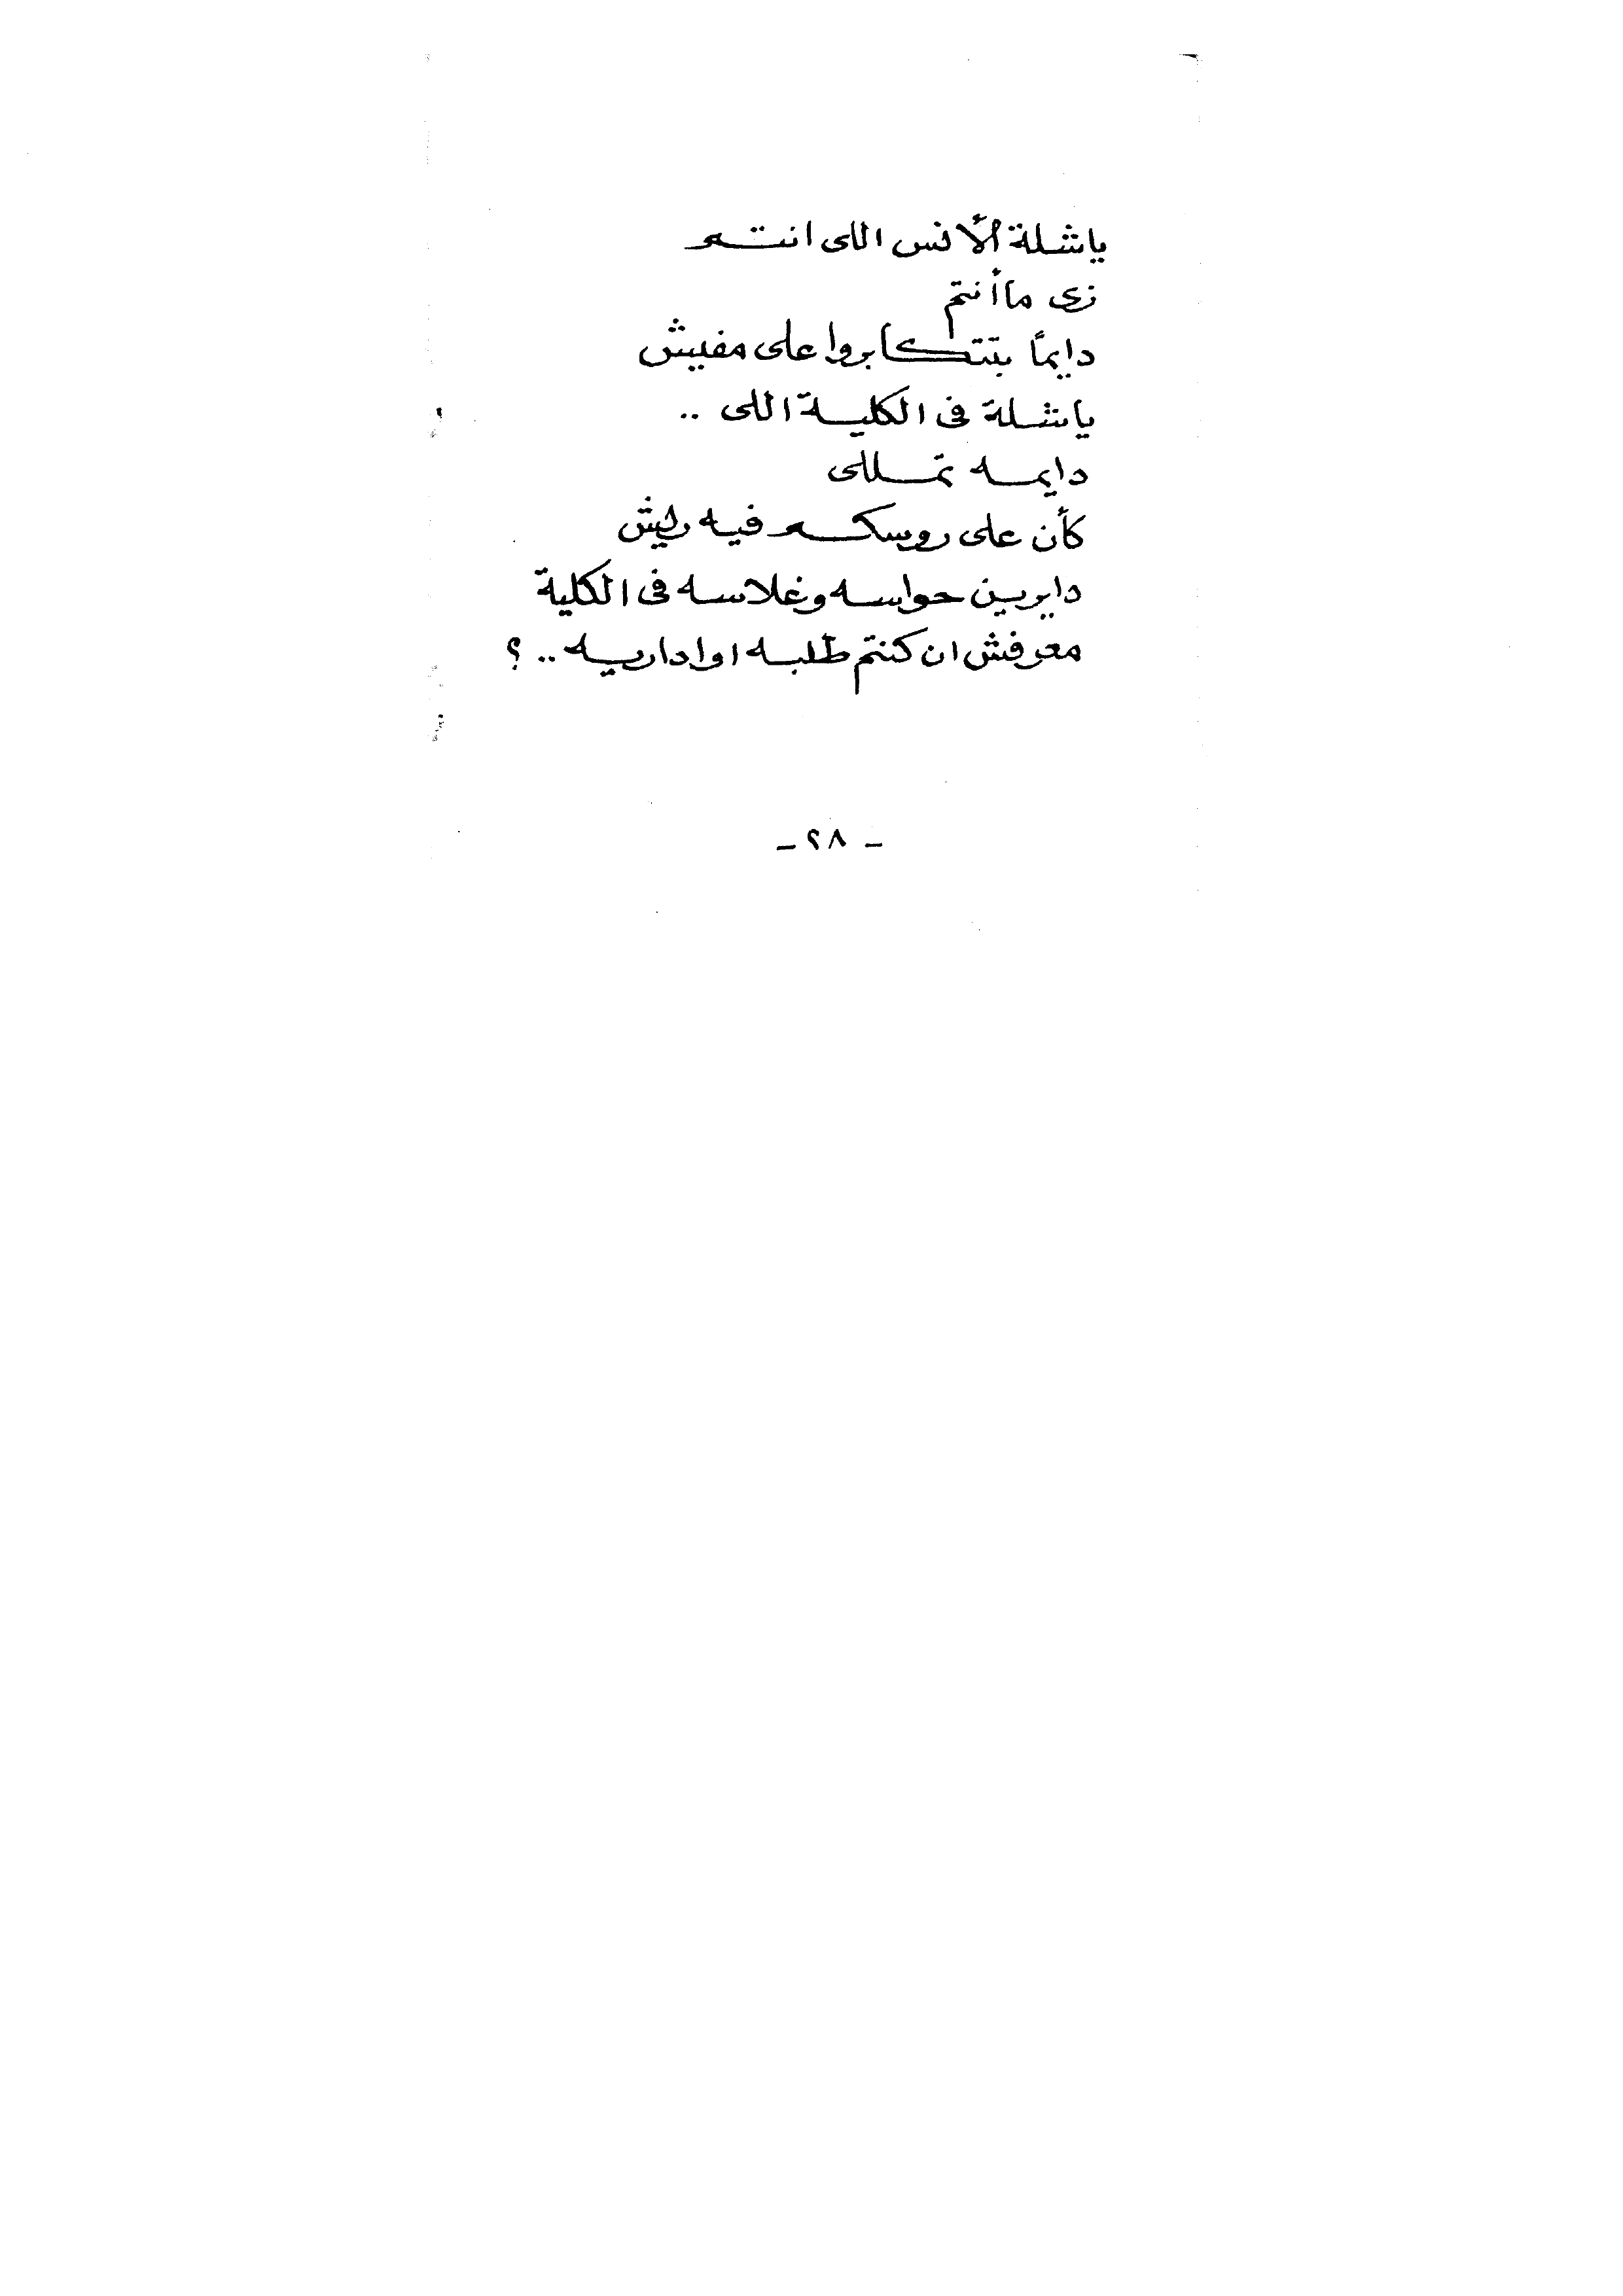 ياشلة الأنس اللى انتم
زى ماأنتم
دايمًا بتتكابروا على مفيش
ياشلة فى الكلية اللى ..
دايمه تمللى
كأن على روسكم فيه ريش
دايرين حواسه وغلاسه فى الكلية
معرفش ان كنتم طلبه او اداريه .. ؟
- ٢٨ -